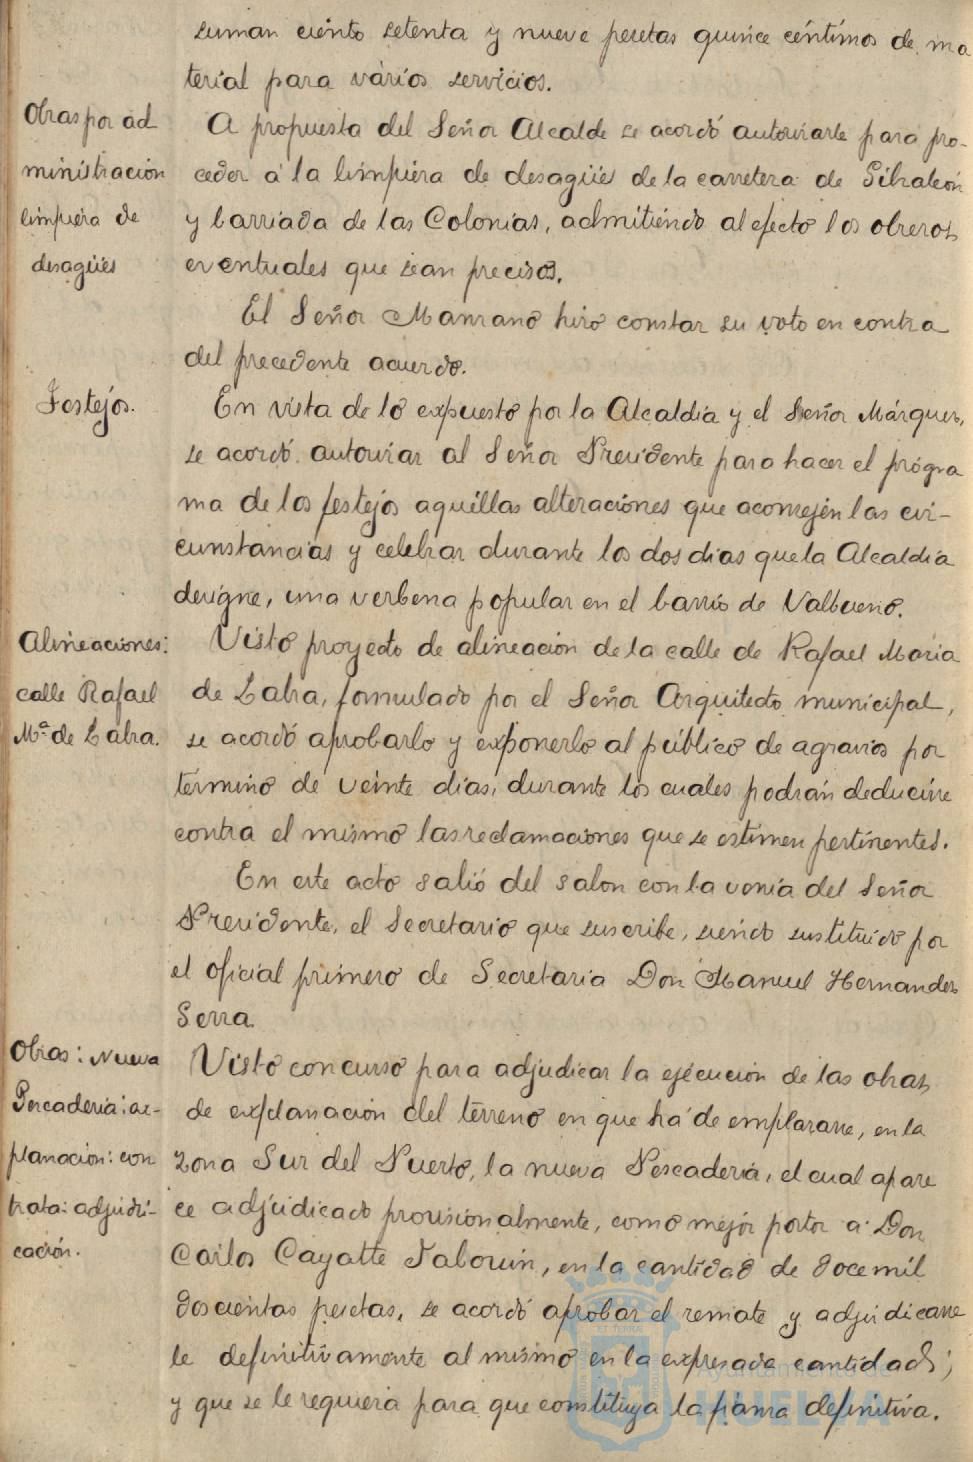 suman ciento setenta y nueve pesetas quince céntimos de ma
terial para varios servicios.
Obras por ad
ministracion
limpieza de
desagües
A propuesta del Señor Alcalde se acordó autorizarle para pro-
ceder a la limpieza de desagües de la carretera de Gibraleón
y barriada de las Colonias, admitiendo al efecto los obreros
eventuales que sean precisos.
El Señor Manzano hizo constar su voto en contra
del precedente acuerdo.
Festejos.
En vista de lo expuesto por la Alcaldia y el Señor Márquez,
se acordó autorizar al Señor Presidente para hacer el progra
ma de los festejos aquellas alteraciones que aconsejen las cir-
cunstancias y celebrar durante los dos dias que la Alcaldia
designe, una verbena popular en el barrio de Valbueno.
Alineaciones:
calle Rafael
Mª de Labra.
Visto proyecto de alineación de la calle de Rafael Maria
de Labra, formulado por el Señor Arquitecto municipal,
se acordó aprobarlo y exponerlo al público de agravios por
término de veinte dias, durante los cuales podrán deducirse
contra el mismo las reclamaciones que se estimen pertinentes.
En este acto salió del salon con la venia del Señor
Presidente, el Secretario que suscribe, siendo sustituido por
el oficial primero de Secretaria Don Manuel Hernandez
Serra.
Obras: Nueva
Pescaderia: ex-
planacion: con
trata: adjudi-
cación.
Visto concurso para adjudicar la ejecución de las obras
de explanación del terreno en que ha de emplazarse, en la
zona Sur del Puerto, la nueva Pescaderia, el cual apare
ce adjudicado provisionalmente, como mejor postor a Don
Carlos Cayatte Tabouin, en la cantidad de doce mil
doscientas pesetas, se acordó aprobar el remate y adjudicarse
le definitivamente al mismo en la expresada cantidad;
y que se le requiera para que constituya la fianza definitiva.
Ayuntamiento de
HUELVA